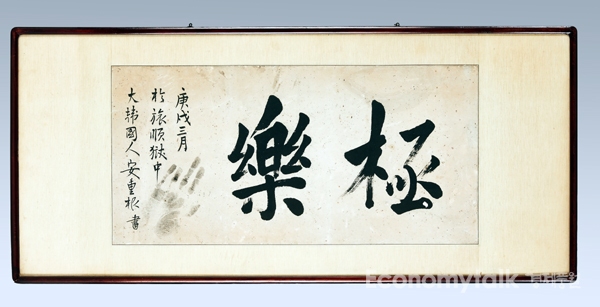 極樂
庚戌三月
於旅順獄中
大韓國人 安重根 書
Economytalk